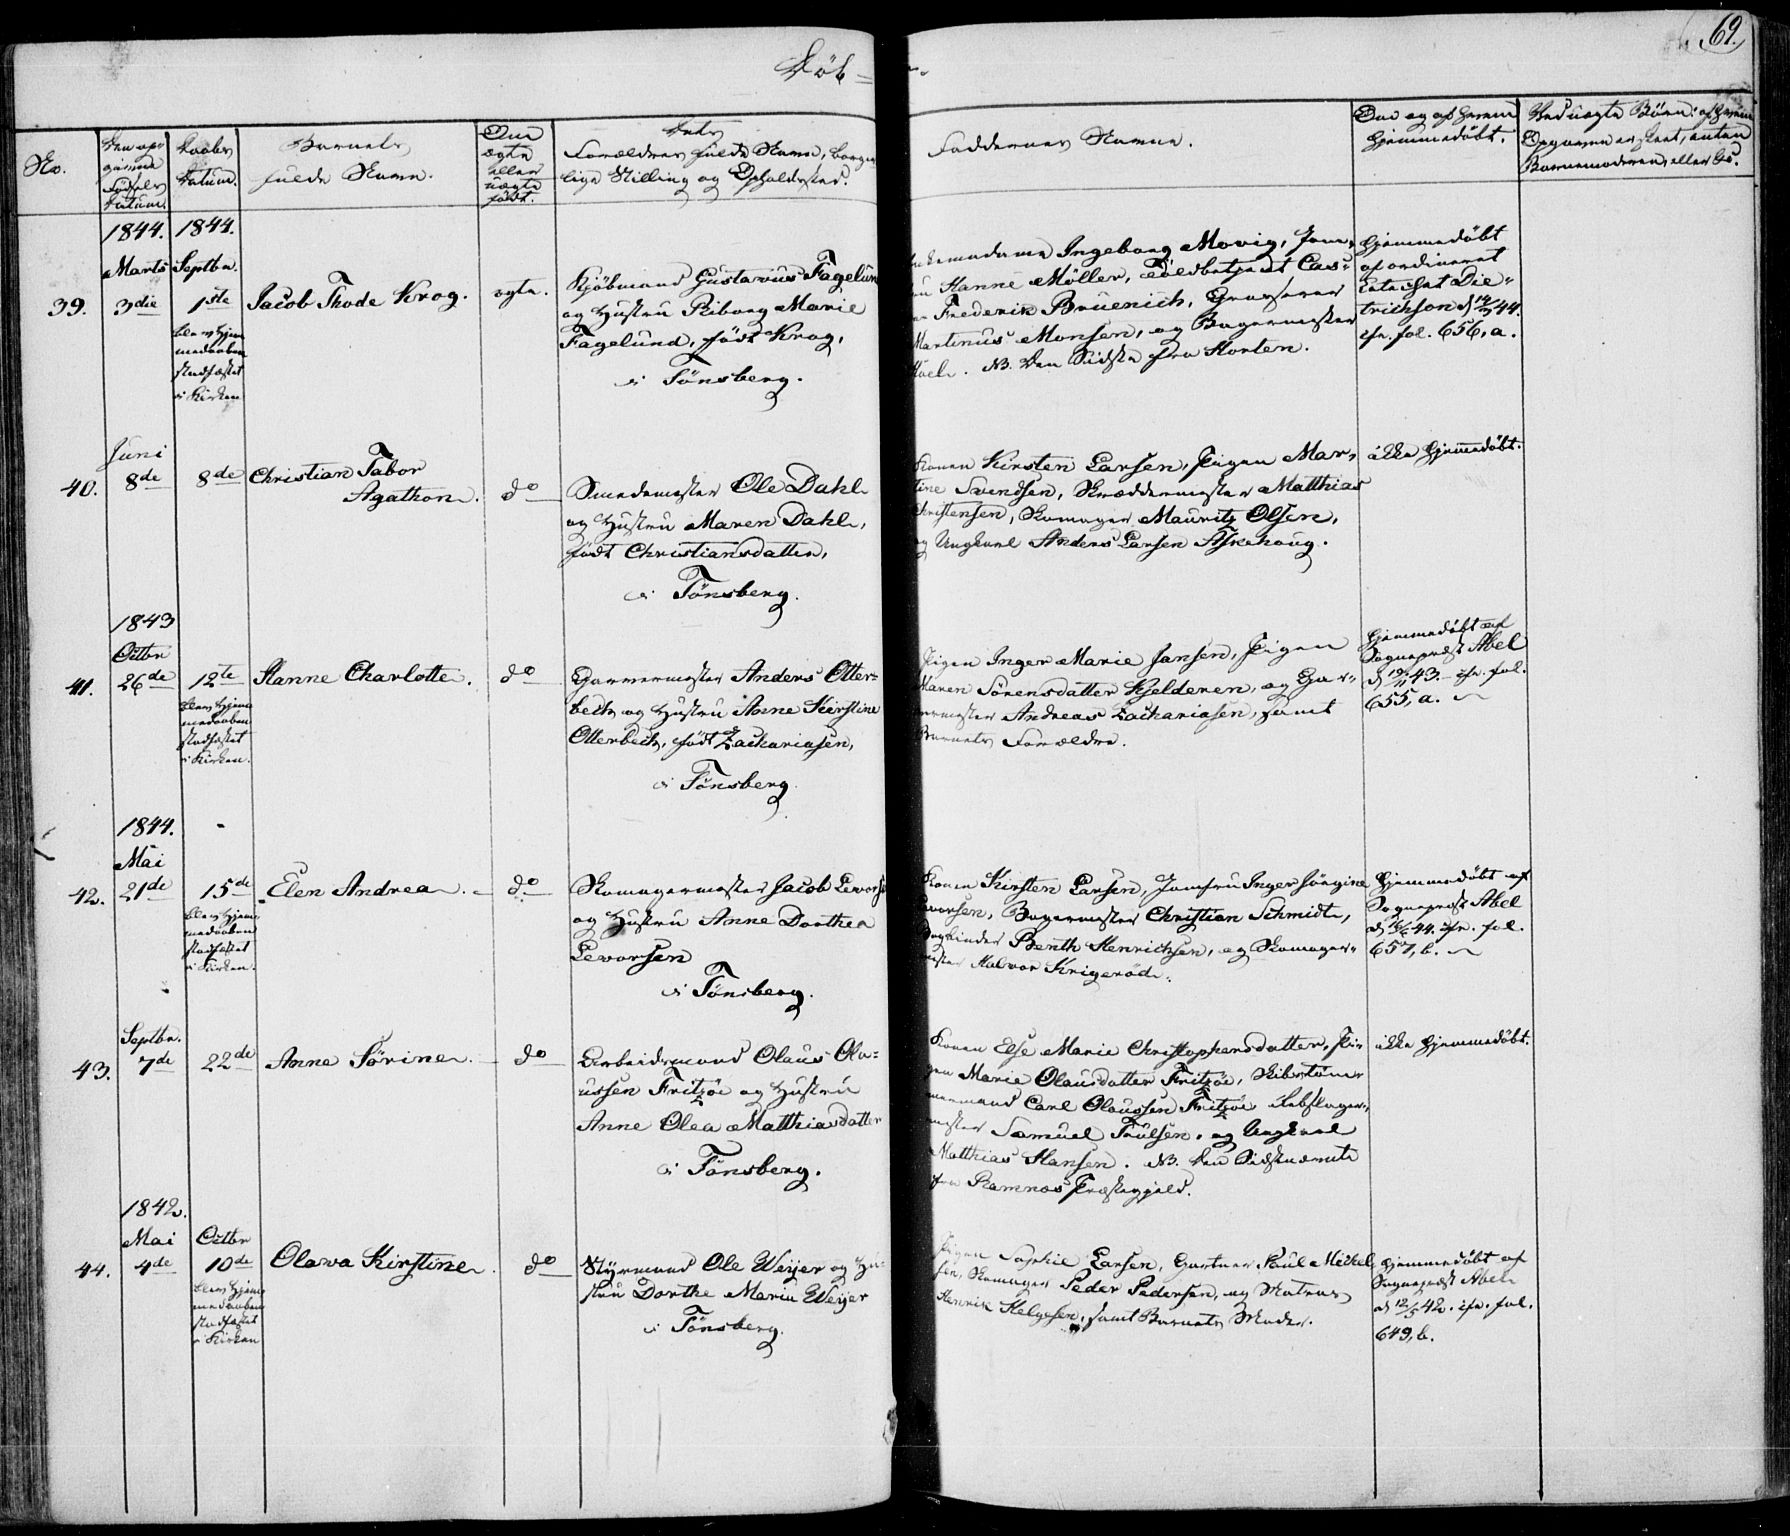 Døb-
69.
No.
Den op-
givende
Fødsels
Datum.
Daabs
Datum.
Barnets
fulde Navn.
Om
ægte
eller
uægte
født.
Dets
Forældres fulde Navn, borger-
lige Stilling og Opholdssted.
Faddernes Navne.
Om og af hvem
hjemmedøbt.
Ved uægte Børn: af hvem
Opgaven er skeet, enten
Barnemoderen, eller
39.
1844.
Marts
3die
1844.
Septbr.
1ste
blev Hjem-
medaaben
stadfæstet
i Kirken
Jacob Thode Krog.
ægte.
Kjøbmand Gustavus Fagelund
og Hustru Riborg Marie
Fagelund, født Krog,
i Tönsberg.
Ingeborg Movig, Jom-
fru Hanne Möller, Toldbetjent Cas-
Frederik Bruenich, Grosserer
Martinus Monsen, og Bagermester
NB. den Sidste fra Horten.
Hjemmedøbt
af ordineret
Catechet Die-
trichson d 14/3 44.
cfr. fol. 656, a.
40.
Juni
8de
8de
Christian Tabor
Agathon.
do
Smedemester Ole Dahl
og Hustru Maren Dahl,
født Christiansdatter,
i Tönsberg.
Konen Kirsten Larsen, Pigen Mar-
tine Svendsen, Skræddermester Matthias
Christensen, Skomager Mauritz Olsen,
og Ungkarl Anders Larsen Askehoug.
ikke hjemmedøbt.
41.
1843
Octbr
26de
12te
blev Hjem-
medaaben
stadfæstet
i Kirken.
Hanne Charlotte.
do
Garvermester Anders Otter-
bech og Hustru Anne Kirstine
Otterbech, født Zachariasen,
i Tönsberg.
Pigen Inger Marie Jansen, Pigen
Maren Sörensdatter Kjelderen, og Gar-
vermester Andreas Zachariasen, samt
Barnets Forældre.
Hjemmedøbt af
Sognepræst Abel
d 19/11 43. cfr. fol.
655, a.
42.
1844.
Mai
21de
15de
blev Hjem-
medaaben
stadfæstet
i Kirken.
Elen Andrea.
do
Skomagermester Jacob Levorsen
og Hustru Anne Dorthea
Levorsen
i Tönsberg.
Konen Kirsten Larsen, Jomfru Inger Sörgine
Levorsen, Bagermester Christian Schmidt,
Bogbinder Benth Henrichsen, og Skomager-
mester Halvor Krigeröd.
Hjemmedøbt af
Sognepræst Abel
44. cfr. fol.
657, b.
43.
Septbr.
7de
22de
Anne Sörine.
do
Arbeidsmand Olaus Ola-
ussen Fritzöe og Hustru
Anne Olea Matthiasdatter
i Tönsberg.
Konen Else Marie Christophersdatter, Pi-
gen Marie Olausdatter Fritzöe, Skibstöm-
mermand Carl Olaussen Fritzöe, Rebslager-
mester Samuel Poulsen, og Ungkarl
Matthias Hansen. NB. den Sidstnævnte
fra Ramnæs Præstegjeld.
ikke hjemmedøbt.
44.
1842.
Mai
4de
Octbr
10de
blev Hjem-
medaaben
stadfæstet
i Kirken
Olava Kirstine.
do
Styrmand Ole Weijer og Hu-
stru Dorthe Maria Weijer
i Tönsberg.
Pigen Sophie Larsen, Gartner Paul Mickel-
sen, Skomager Peder Pedersen, og Matros
Henrik Helgesen, samt Barnets Moder.
Hjemmedøbt af
Sognepræst Abel
d 12/5 42. cfr. fol.
649, b.